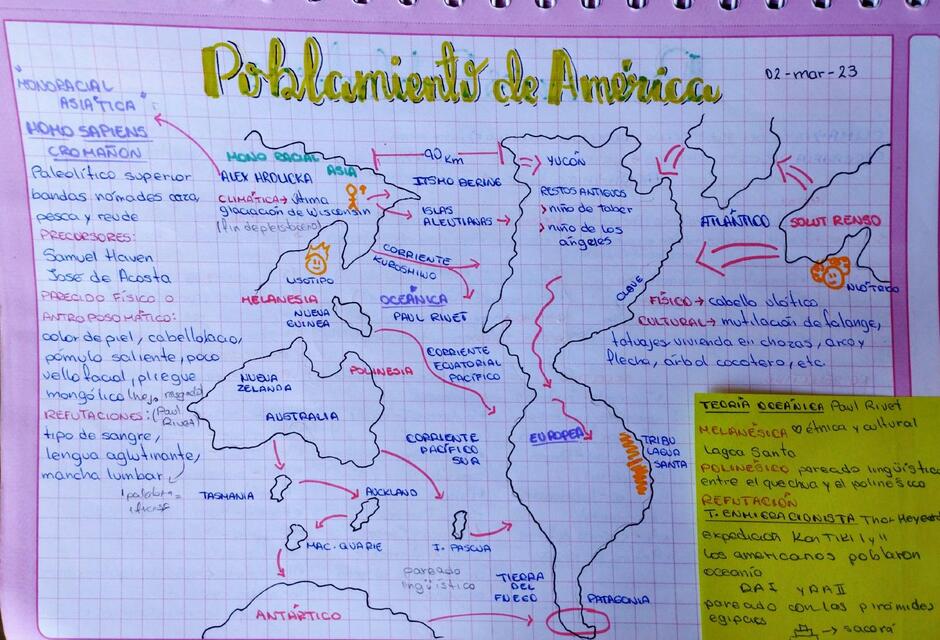 Poblamiento de América
02-mar-23
"MONORACIAL
ASIÁTICA"
HOMO SAPIENS
CROMAÑON
Paleolítico superior
bandas nómades caza,
pesca y
PRECURSORES:
Samuel Haven
Jose de Acosta
PARECIDO FÍSICO O
ANTROPOSOMÁTICO:
color de piel, cabello lacio,
pómulo saliente, poco
vello facial, pliegue
mongólico
REFUTACIONES: (Paul
Rivet)
tipo de sangre,
lengua aglutinante,
mancha lumbar
1 palabra =
MONO RACIAL
ALEX HRDLICKA
ASIA
CLIMÁTICA → última
glaciación de Wisconsin
(fin de pleistoceno)
90 Km
ITSMO BERING
ISLAS
ALEUTIANAS
CORRIENTE
KUROSHINO
ULOTIPO
MELANESIA
NUEVA
GUINEA
OCEÁNICA
PAUL RIVET
POLINESIA
CORRIENTE
ECUATORIAL
PACÍFICO
NUEVA
ZELANDA
AUSTRALIA
CORRIENTE
PACÍFICO
SUR
TASMANIA
AUCKLAND
MAC. QUARIE
I. PASCUA
pareado
lingüístico
ANTÁRTICO
TIERRA
DEL
FUEGO
PATAGONIA
YUCÓN
RESTOS ANTIGUOS
> niño de taber
> niño de los
ángeles
CLAVE
EUROPEA
TRIBU
LAGUA
SANTA
ATLÁNTICO
SOLUTRENSO
ULÓTRICO
FÍSICO → cabello ulótico
CULTURAL → mutilación de falange,
tatuajes, vivienda en chozas, arco y
flecha, árbol cocotero, etc
TEORÍA OCEÁNICA Paul Rivet
MELANÉSICA ♡ étnica y cultural
Lagoa Santo
POLINESICO pareado lingüístico
entre el quechua y el polinésico
REFUTACIÓN
T. ENMIGRACIONISTA Thor Heyerd
expedición Kon TIKI I y II
los americanos poblaron
oceanía
RA I y RA II
pareado con las pirámides
egipcias
→ sacará